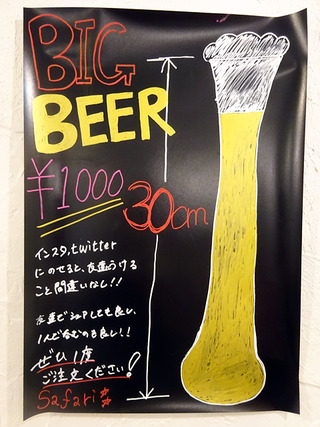 BIG
BEER
¥1000
30cm
インスタ,twitter
にのせると、友達うける
こと間違いなし!!
友達で
しても良し、
1人で飲むのも良し!!
ぜひ1度
ご注文ください!
Safari